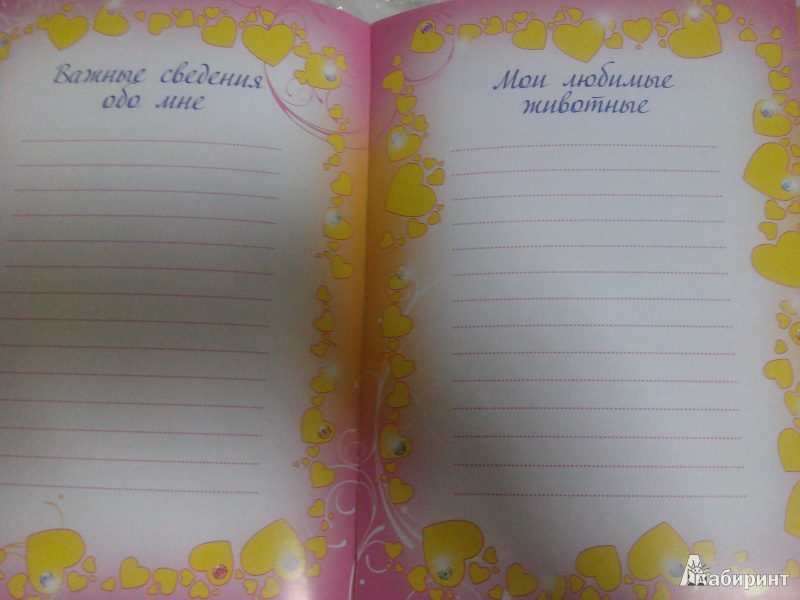 Важные сведения
обо мне
Мои любимые
животные
Лабиринт